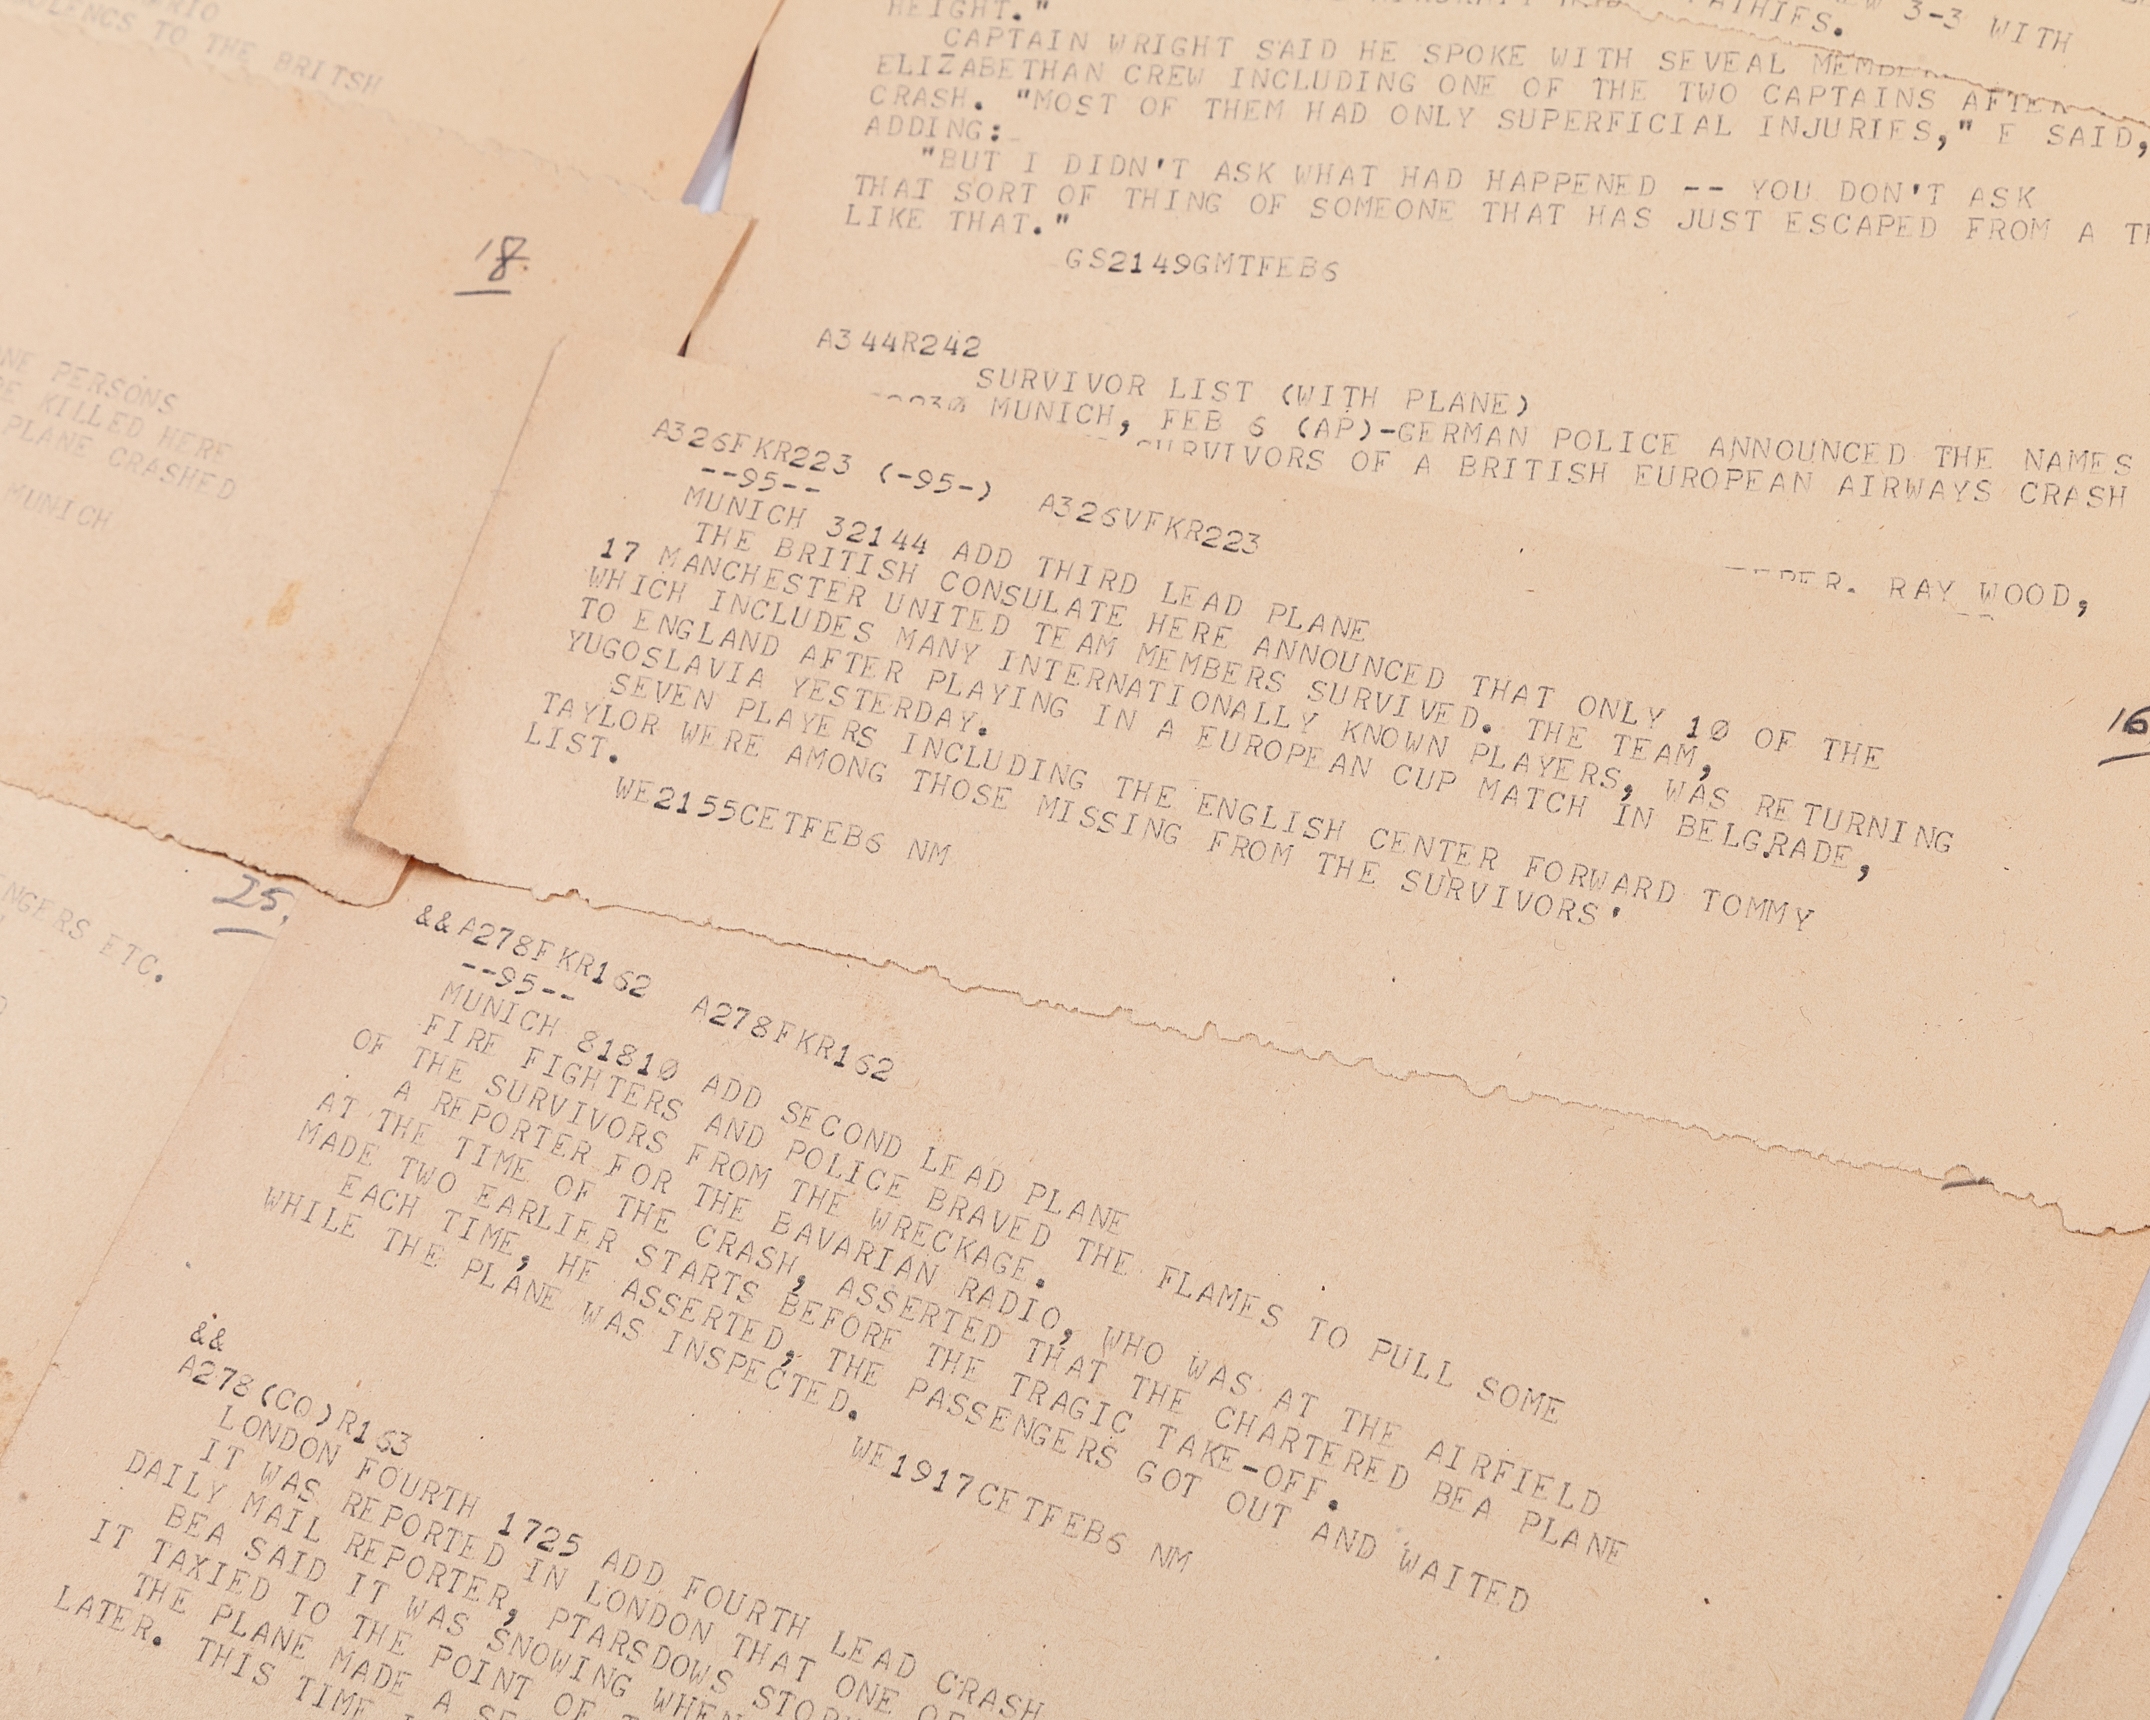 TO THE BRITSH
18
NE PERSONS
E KILLED HERE
PLANE CRASHED
MUNICH
25.
NGERS ETC.
3-3 WITH
HEIGHT."
CAPTAIN WRIGHT SAID HE SPOKE WITH SEVEAL
ELIZABETHAN CREW INCLUDING ONE OF THE TWO CAPTAINS AFTER
CRASH. "MOST OF THEM HAD ONLY SUPERFICIAL INJURIES," E SAID,
ADDING:
"BUT I DIDN'T ASK WHAT HAD HAPPENED -- YOU DON'T ASK
THAT SORT OF THING OF SOMEONE THAT HAS JUST ESCAPED FROM A
LIKE THAT."
GS2149GMTFEB6
A344R242
SURVIVOR LIST (WITH PLANE)
MUNICH, FEB 6 (AP)-GERMAN POLICE ANNOUNCED THE NAMES
SURVIVORS OF A BRITISH EUROPEAN AIRWAYS CRASH
RAY WOOD,
16
A326FKR223 (-95-) A326VFKR223
--95--
MUNICH 32144 ADD THIRD LEAD PLANE
THE BRITISH CONSULATE HERE ANNOUNCED THAT ONLY 10 OF THE
17 MANCHESTER UNITED TEAM MEMBERS SURVIVED. THE TEAM,
WHICH INCLUDES MANY INTERNATIONALLY KNOWN PLAYERS, WAS RETURNING
TO ENGLAND AFTER PLAYING IN A EUROPEAN CUP MATCH IN BELGRADE,
YUGOSLAVIA YESTERDAY.
SEVEN PLAYERS INCLUDING THE ENGLISH CENTER FORWARD TOMMY
TAYLOR WERE AMONG THOSE MISSING FROM THE SURVIVORS'
LIST.
WE2155CETFEB6 NM
&&A278FKR162 A278FKR162
--95--
MUNICH 81810 ADD SECOND LEAD PLANE
FIRE FIGHTERS AND POLICE BRAVED THE FLAMES TO PULL SOME
OF THE SURVIVORS FROM THE WRECKAGE.
A REPORTER FOR THE BAVARIAN RADIO, WHO WAS AT THE AIRFIELD
AT THE TIME OF THE CRASH, ASSERTED THAT THE CHARTERED BEA PLANE
MADE TWO EARLIER STARTS BEFORE THE TRAGIC TAKE-OFF.
EACH TIME, HE ASSERTED, THE PASSENGERS GOT OUT AND WAITED
WHILE THE PLANE WAS INSPECTED.
WE1917CETFEB6 NM
&&
A278(CO)R163
LONDON FOURTH 1725 ADD FOURTH LEAD CRASH
IT WAS REPORTED IN LONDON THAT ONE OF
DAILY MAIL REPORTER, PTARSDOWS
BEA SAID IT WAS SNOWING WHEN
IT TAXIED TO THE POINT OF
THE PLANE MADE A
LATER. THIS TIME